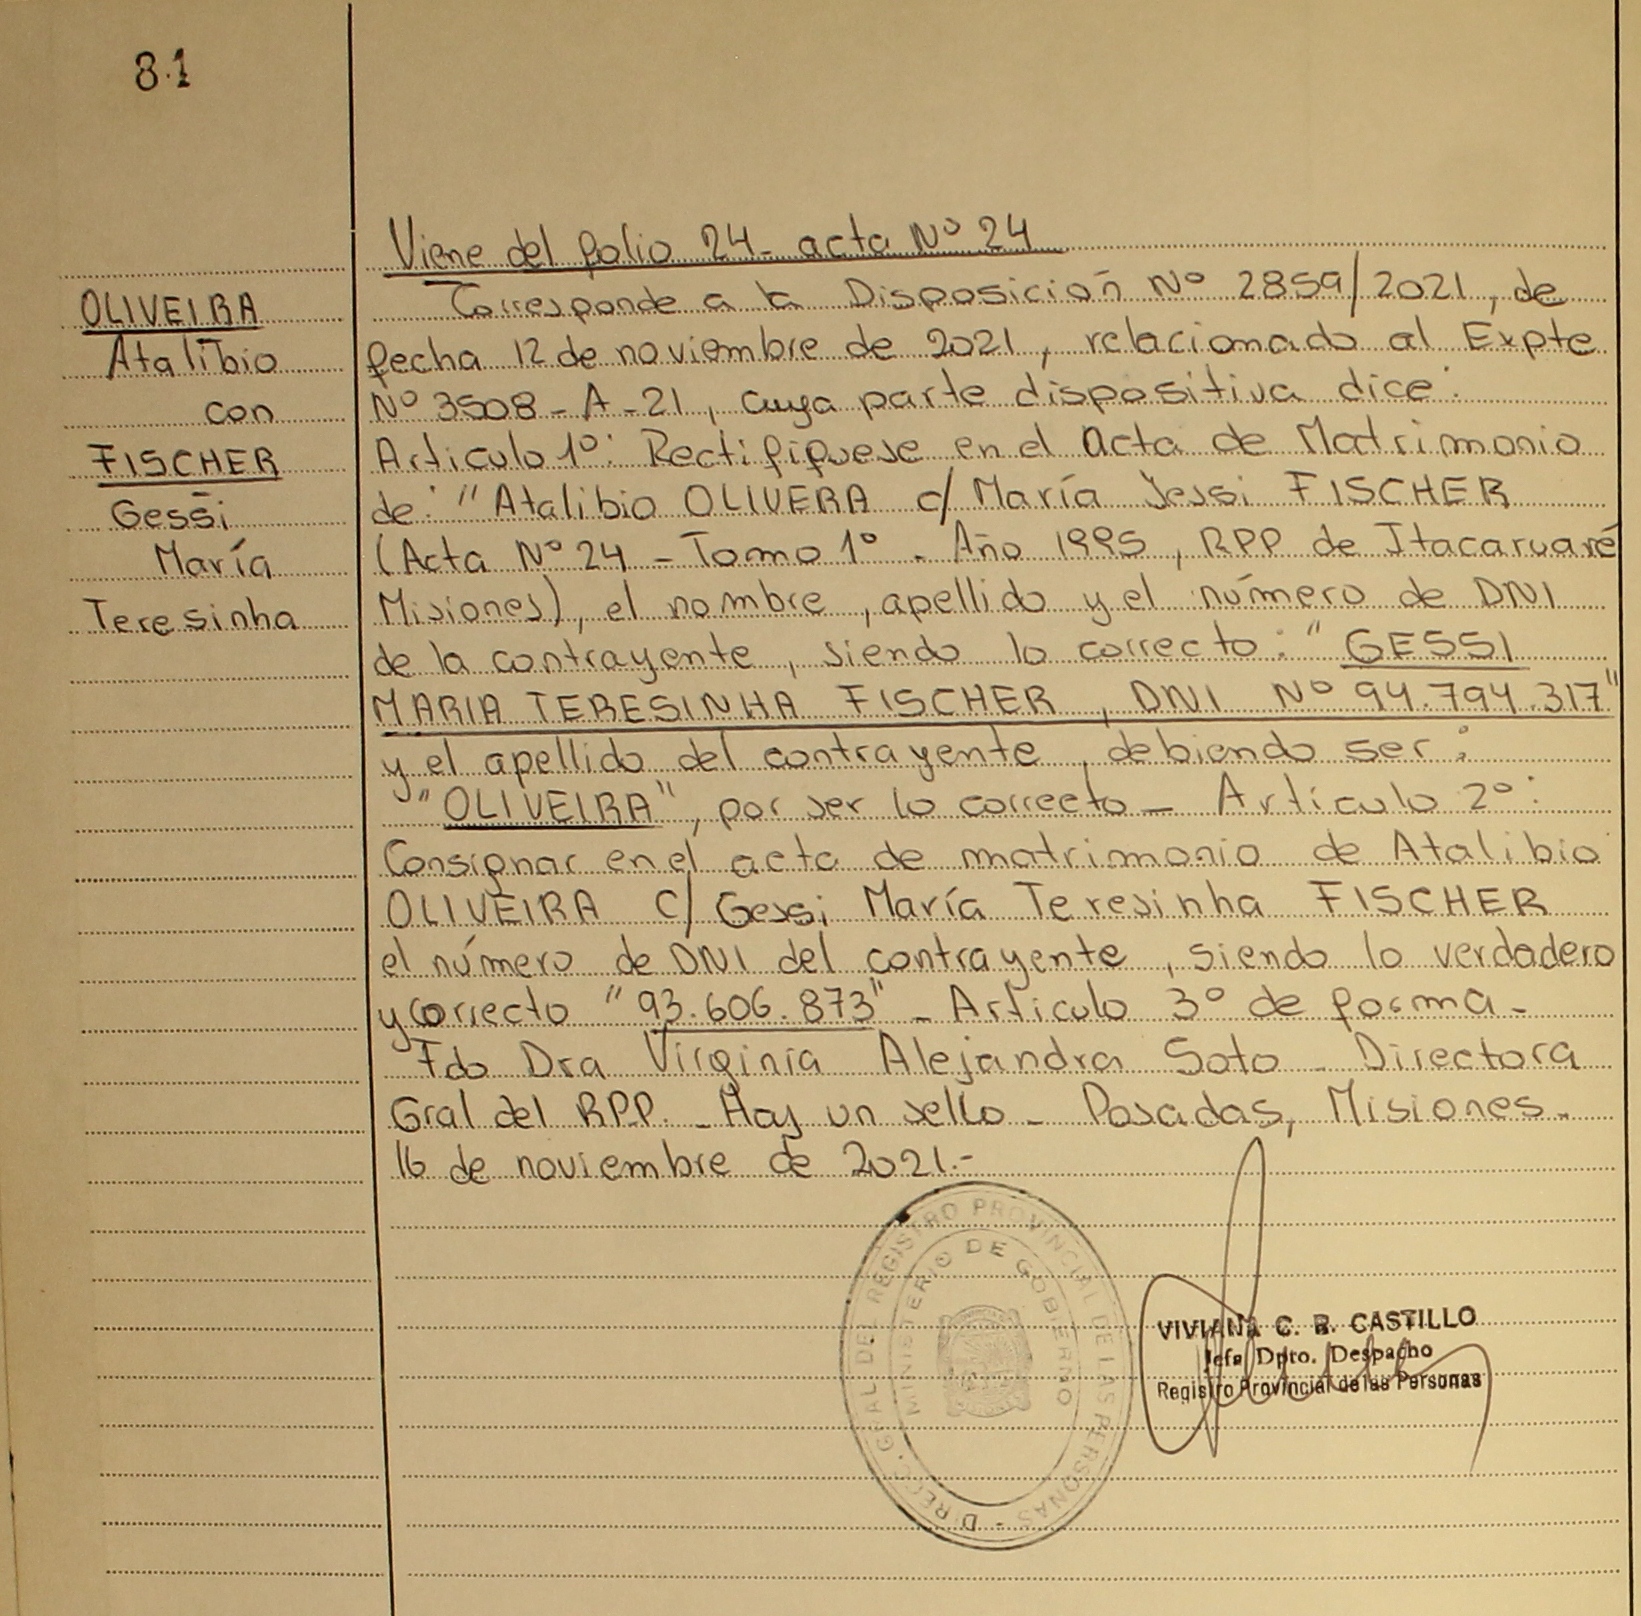 81
Viene del folio 24- acta Nº 24
OLIVEIRA
Atalibio
con
FISCHER
Gessi
María
Teresinha
Corresponde a la Disposición Nº 2859/2021, de
fecha 12 de noviembre de 2021, relacionado al Expte
Nº 3508-A-21, cuya parte dispositiva dice:
Articulo 1º: Rectifíquese en el acta de Matrimonio
de: "Atalibio OLIVERA c/ María Jessi FISCHER
(Acta Nº 24 - Tomo 1º - Año 1995, RPP de Itacaruaré
Misiones), el nombre, apellido y el número de DNI
de la contrayente, siendo lo correcto: "GESSI
MARIA TERESINHA FISCHER, DNI Nº 94.794.317"
y el apellido del contrayente, debiendo ser:
"OLIVEIRA", por ser lo correcto- Artículo 2º:
Consignar en el acta de matrimonio de Atalibio
OLIVEIRA C/ Gessi María Teresinha FISCHER
el número de DNI del contrayente, siendo lo verdadero
y correcto "93.606.873" - Articulo 3º de forma-
Fdo Dra Virginia Alejandra Soto - Directora
Gral del RPP. - Hay un sello - Posadas, Misiones-
16 de noviembre de 2021.-
DIRECC. GRAL DEL REGISTRO PROVINCIAL DE LAS PERSONAS -
MINISTERIO DE GOBIERNO
VIVIANA C. R. CASTILLO
Jefa Dpto. Despacho
Registro Provincial de las Personas